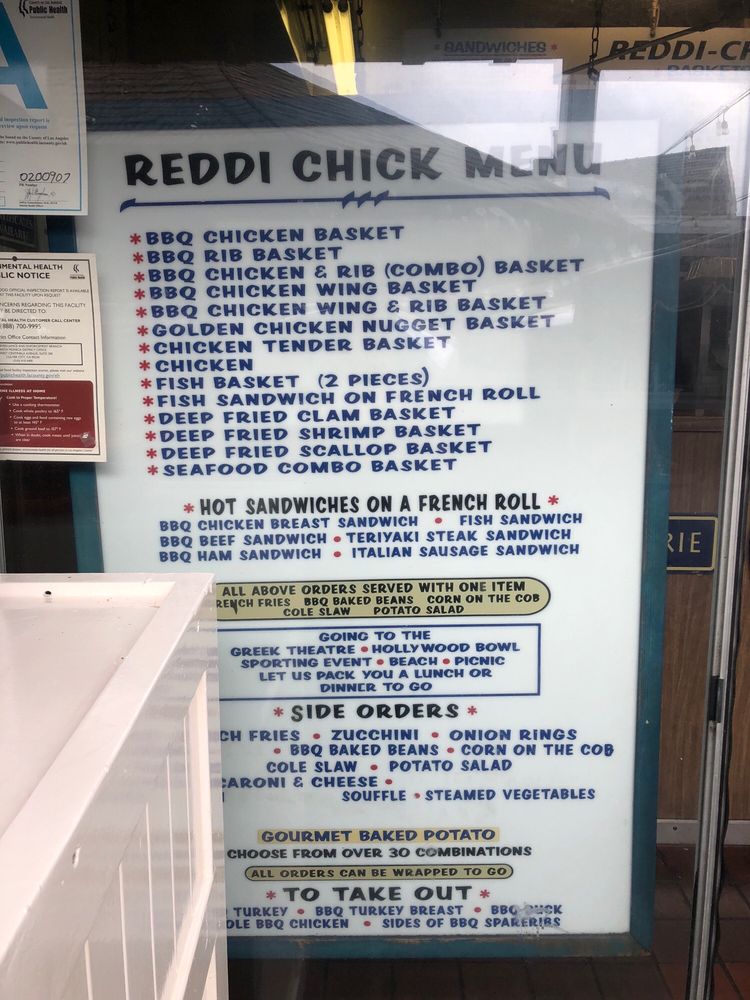 Public Health
A
0200907
REDDI-CH
SANDWICHES *
REDDI CHICK MENU
* BBQ CHICKEN BASKET
* BBQ RIB BASKET
* BBQ CHICKEN & RIB (COMBO) BASKET
* BBQ CHICKEN WING BASKET
* BBQ CHICKEN WING & RIB BASKET
* GOLDEN CHICKEN NUGGET BASKET
* CHICKEN TENDER BASKET
* CHICKEN
* FISH BASKET (2 PIECES)
* FISH SANDWICH ON FRENCH ROLL
* DEEP FRIED CLAM BASKET
* DEEP FRIED SHRIMP BASKET
* DEEP FRIED SCALLOP BASKET
* SEAFOOD COMBO BASKET
* HOT SANDWICHES ON A FRENCH ROLL *
BBQ CHICKEN BREAST SANDWICH • FISH SANDWICH
BBQ BEEF SANDWICH • TERIYAKI STEAK SANDWICH
BBQ HAM SANDWICH • ITALIAN SAUSAGE SANDWICH
ALL ABOVE ORDERS SERVED WITH ONE ITEM
RENCH FRIES BBQ BAKED BEANS CORN ON THE COB
COLE SLAW POTATO SALAD
GOING TO THE
GREEK THEATRE • HOLLYWOOD BOWL
SPORTING EVENT • BEACH • PICNIC
LET US PACK YOU A LUNCH OR
DINNER TO GO
* SIDE ORDERS *
CH FRIES • ZUCCHINI • ONION RINGS
• BBQ BAKED BEANS • CORN ON THE COB
COLE SLAW • POTATO SALAD
CARONI & CHEESE •
SOUFFLE • STEAMED VEGETABLES
GOURMET BAKED POTATO
CHOOSE FROM OVER 30 COMBINATIONS
ALL ORDERS CAN BE WRAPPED TO GO
* TO TAKE OUT *
TURKEY • BBQ TURKEY BREAST • BBQ DUCK
OLE BBQ CHICKEN • SIDES OF BBQ SPARERIBS
NMENTAL HEALTH
LIC NOTICE
(888) 700-9995
RIE